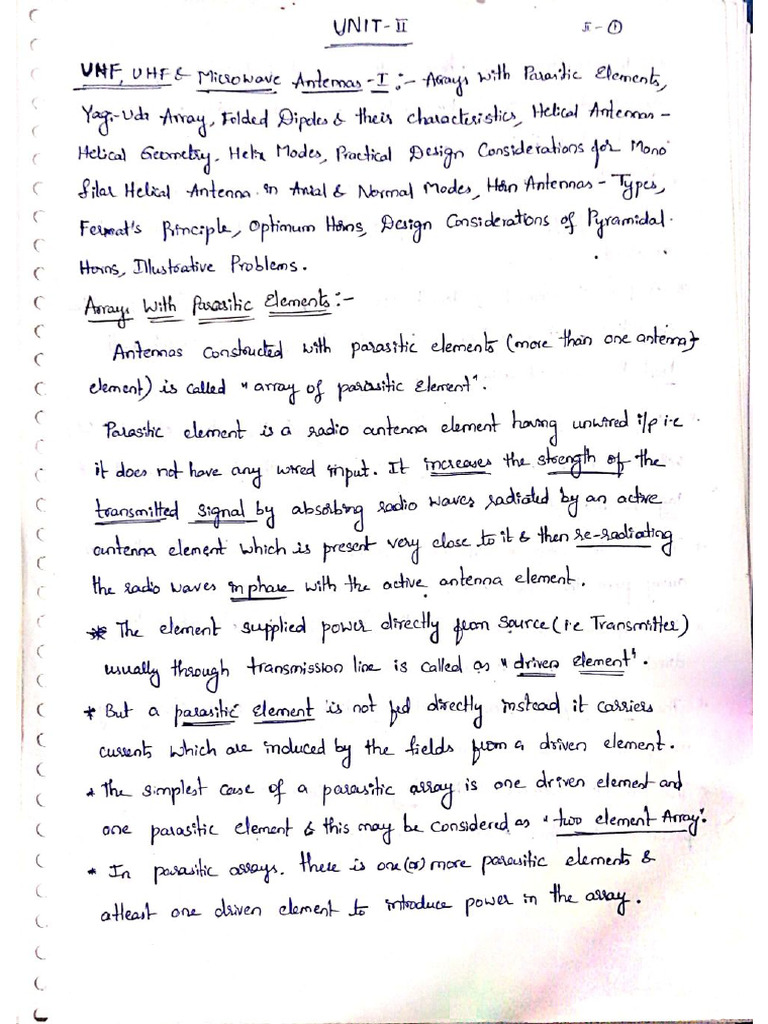 UNIT-II
II-①
VHF, UHF & Microwave Antennas-I :- Arrays with Parasitic Elements,
Yagi-Uda Array, Folded Dipoles & their characteristics, Helical Antennas-
Helical Geometry, Helix Modes, Practical Design Considerations for Mono
filar Helical Antenna in Axial & Normal Modes, Horn Antennas - Types,
Fermat's Principle, Optimum Horns, Design Considerations of Pyramidal
Horns, Illustrative Problems.
Arrays With Parasitic Elements:-
Antennas constructed with parasitic elements (more than one antenna
element) is called "array of parasitic Element".
Parasitic element is a radio antenna element having unwired i/p i.e
it does not have any wired input. It increases the strength of the
transmitted signal by absorbing radio waves radiated by an active
antenna element which is present very close to it & then re-radiating
the radio waves in phase with the active antenna element.
* The element supplied power directly from source (i.e Transmitter)
usually through transmission line is called as "driven element".
* But a parasitic element is not fed directly instead it carriers
currents which are induced by the fields from a driven element.
* The simplest case of a parasitic array is one driven element and
one parasitic element & this may be considered as "two element Array".
* In parasitic arrays, there is one (or) more parasitic elements &
atleast one driven element to introduce power in the array.